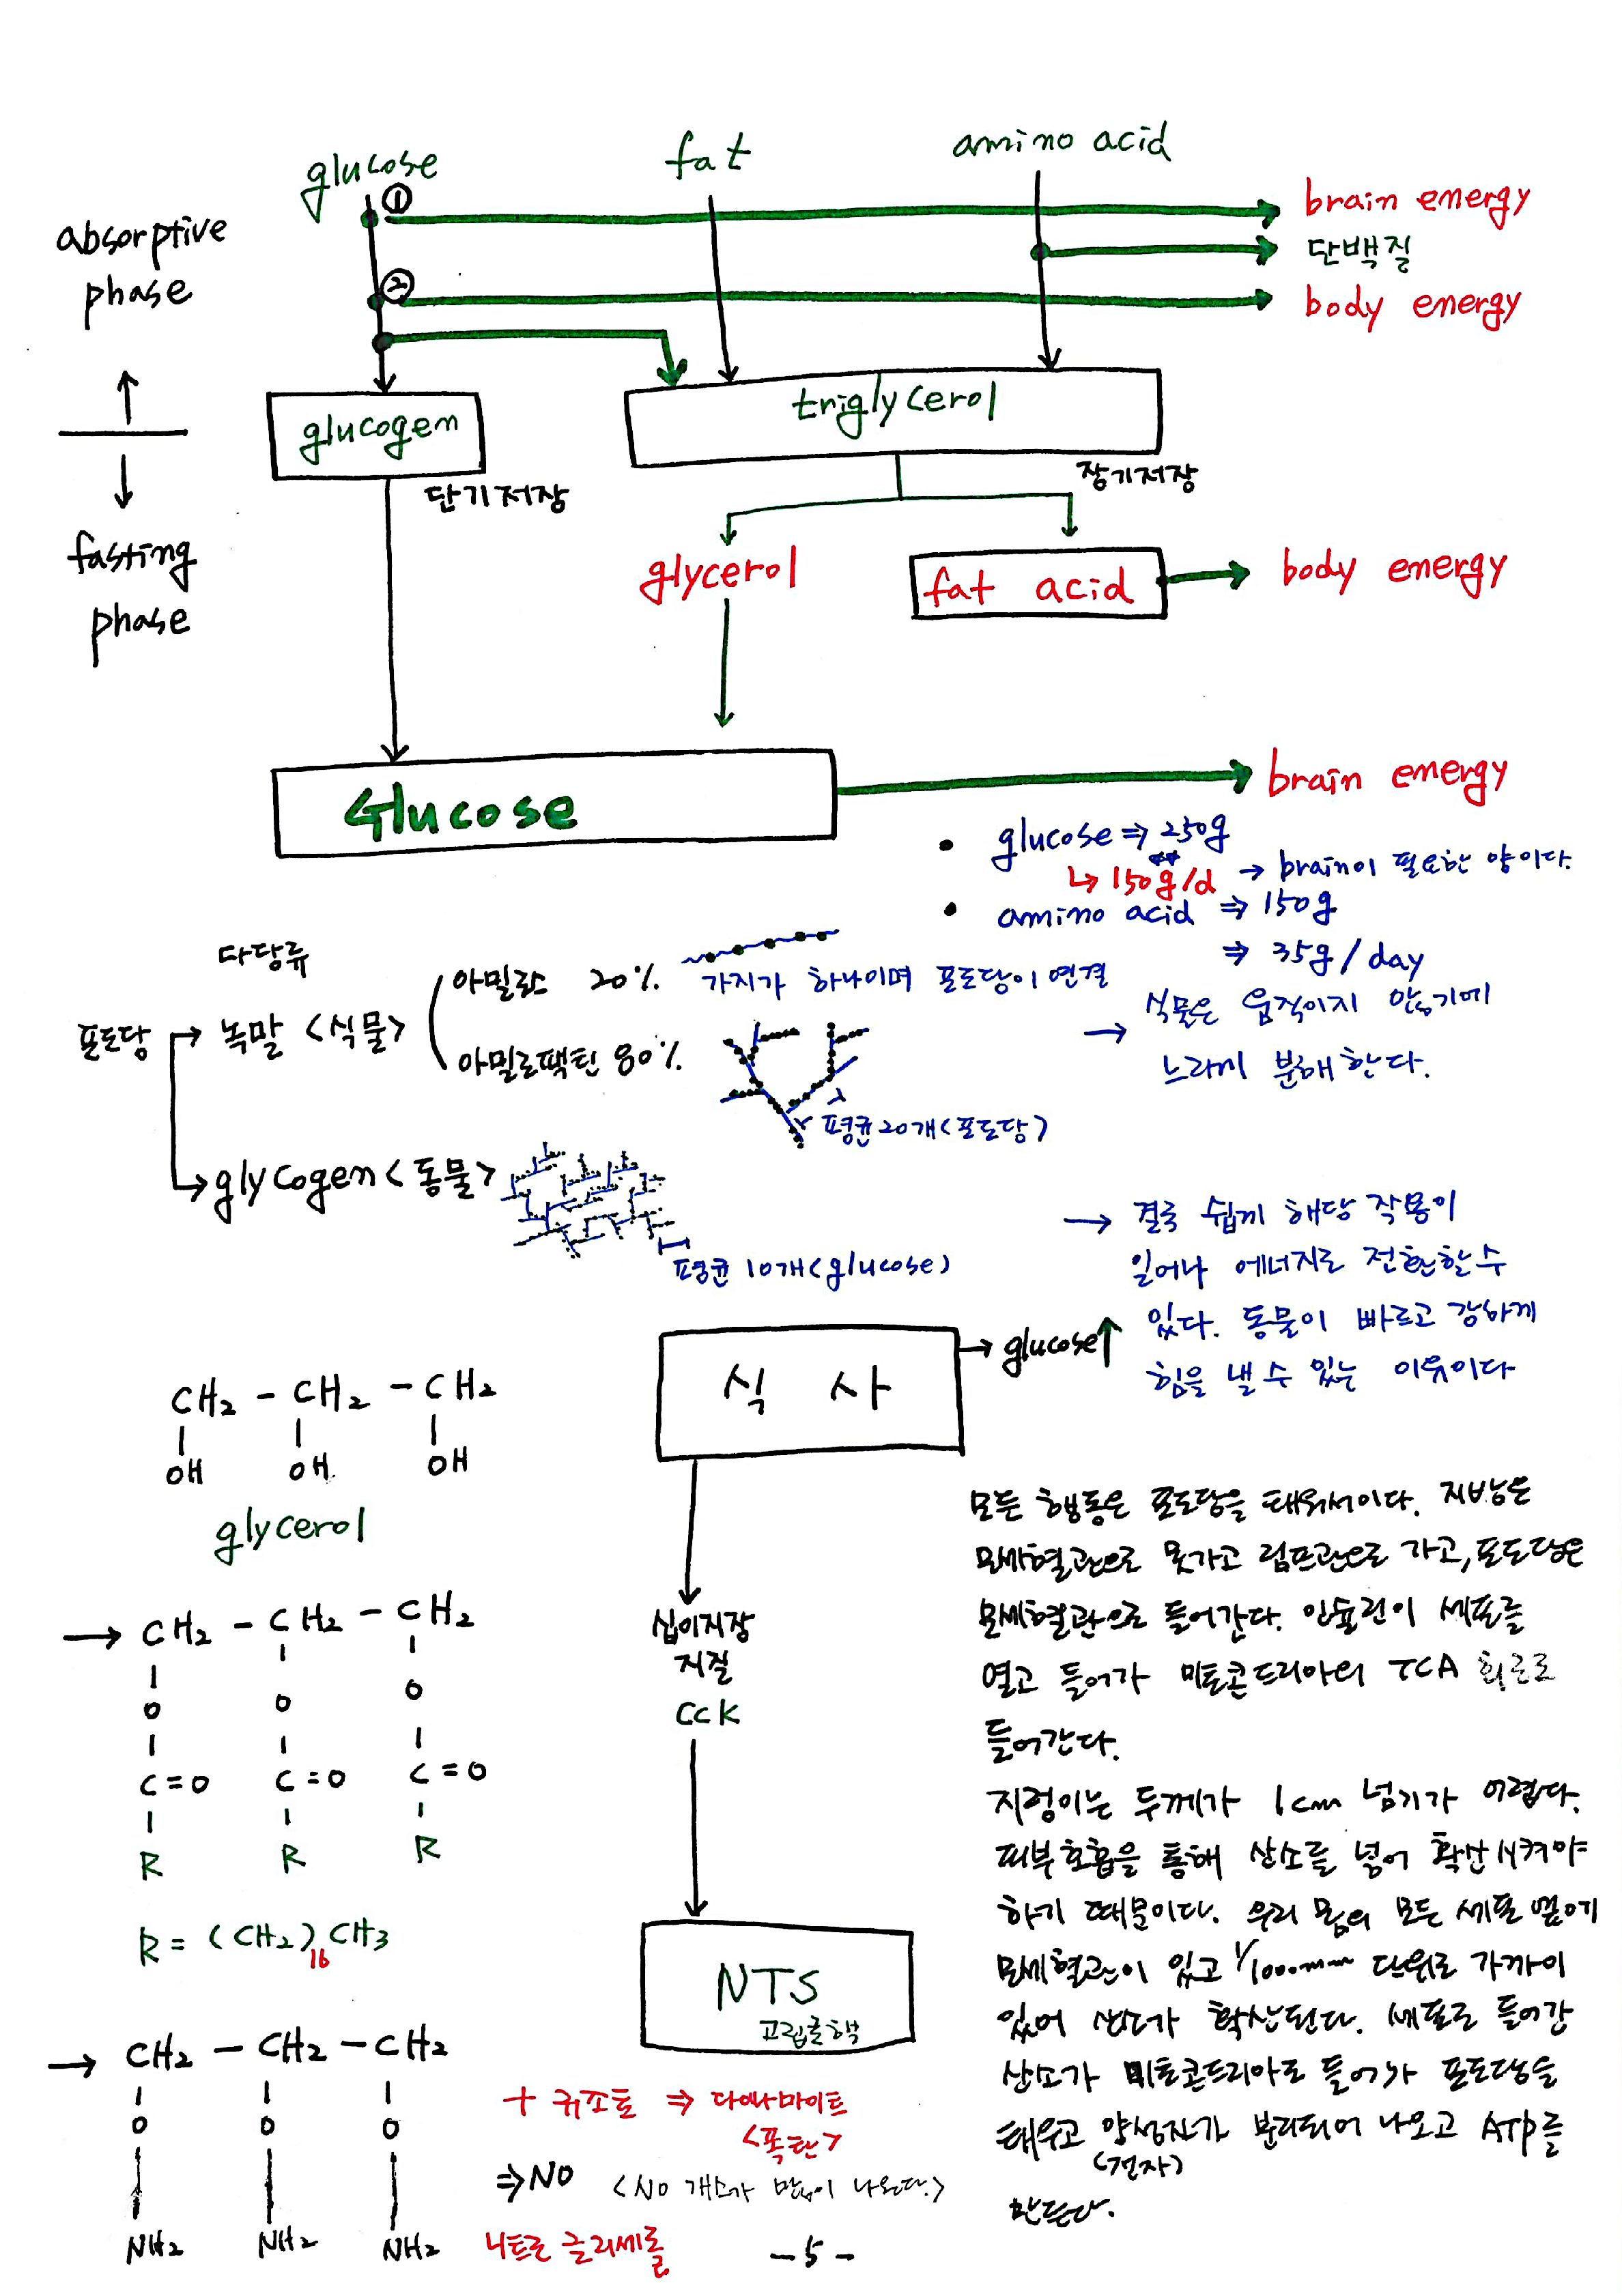 glucose
fat
amino acid
①
brain energy
absorptive
phase
단백질
②
body energy
triglycerol
glucogen
장기저장
단기저장
fasting
phase
glycerol
fat acid
body energy
Glucose
brain energy
• glucose ⇒ 250g
↳ 150g/d → brain이 필요한 양이다.
• amino acid ⇒ 150g
⇒ 35g/day
다당류
포도당
→ 녹말 <식물>
아밀로스 20%
가지가 하나이며 포도당이 연결
아밀로팩틴 80%
평균 20개 (포도당)
→ 식물은 움직이지 않기에
느리게 분해한다.
→ glycogen <동물>
평균 10개 (glucose)
→ 결국 쉽게 해당 작용이
일어나 에너지로 전환할 수
있다. 동물이 빠르고 강하게
힘을 낼 수 있는 이유이다
식 사
→ glucose↑
CH2 - CH2 - CH2
OH OH OH
glycerol
→ CH2 - CH2 - CH2
O O O
C=O C=O C=O
R R R
R = (CH2)16 CH3
십이지장
지질
CCK
NTS
고립로핵
모든 행동은 포도당을 태워서이다. 지방은
모세혈관으로 못가고 림프관으로 가고, 포도당은
모세혈관으로 들어간다. 인슐린이 세포를
열고 들어가 미토콘드리아의 TCA 회로로
들어간다.
지렁이는 두께가 1cm 넘기가 어렵다.
피부호흡을 통해 산소를 넣어 확산시켜야
하기 때문이다. 우리 몸의 모든 세포 옆에
모세혈관이 있고 1/1000mm 단위로 가까이
있어 산소가 확산된다. 세포로 들어간
산소가 미토콘드리아로 들어가 포도당을
태우고 양성자가 분리되어 나오고 ATP를
(전자)
만든다.
→ CH2 - CH2 - CH2
O O O
NH2 NH2 NH2
+ 규조토 ⇒ 다이나마이트
<폭탄>
⇒ NO <NO 개스가 많이 나온다.>
니트로 글리세롤
-5-